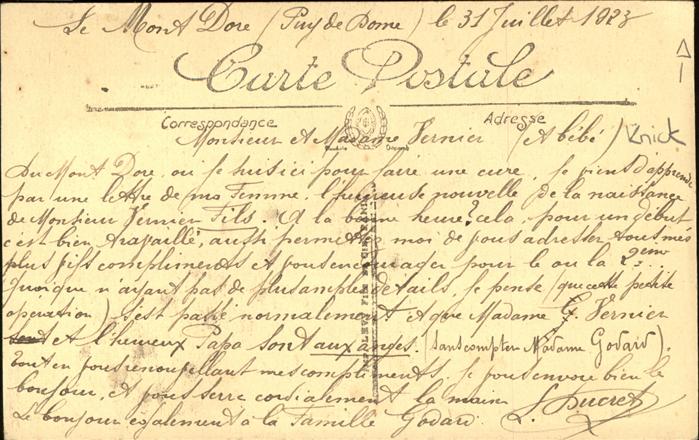 Le Mont Dore (Puy de Dome) le 31 Juillet 1923
Carte Postale
Correspondance
Adresse
Monsieur et Madame Vernier (A bébé)
Knick
Du Mont Dore, où je suis ici pour faire une cure, je viens d'apprendre
par une lettre de ma Femme, l'heureuse nouvelle de la naissance
de Monsieur Vernier Fils. A la bonne heure? cela, pour un début
c'est bien travaillé, aussi permettez moi de vous adresser tous mes
plus vifs compliments et vous encourager pour le ou la 2ème
Quoique n'ayant pas de plus amples détails, je pense (que cette petite
opération) s'est passé normalement et que Madame G. Vernier
et l'heureux Papa sont aux anges. (sans compter Madame Godard).
tout en vous renouvellant mes compliments, je vous envoie bien le
bonjour, et vous serre cordialement la main
L. Ducret
Le bonjour également à la Famille Godard.